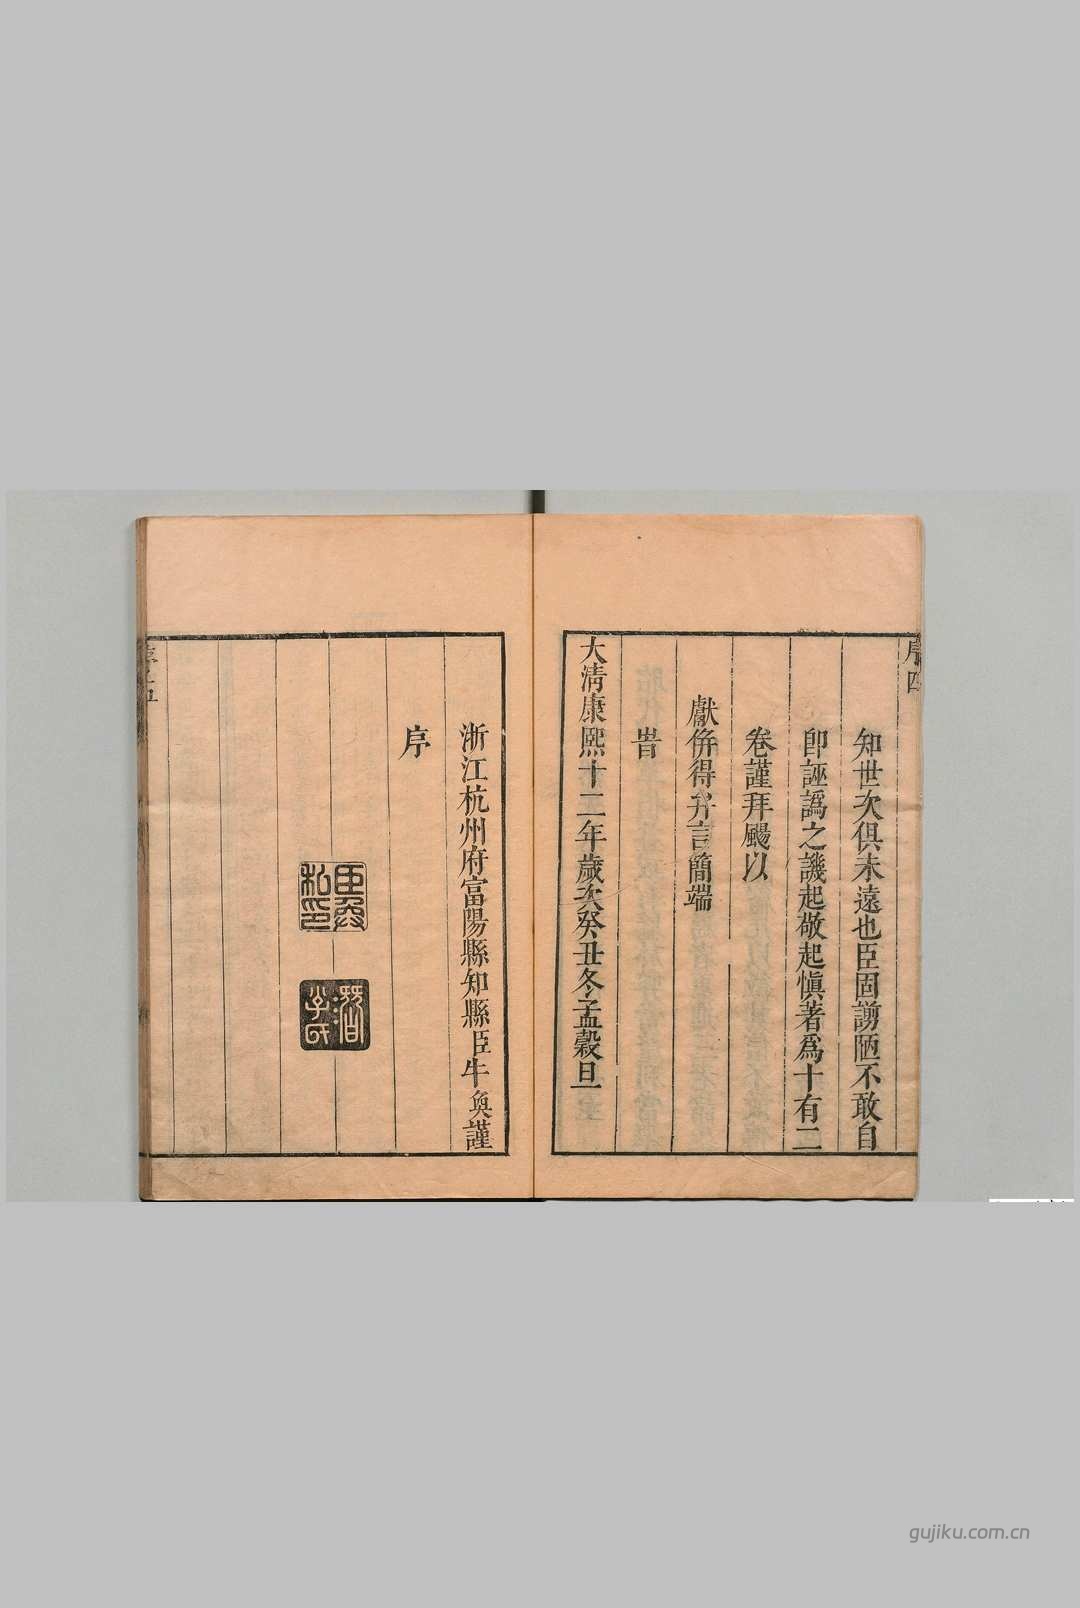 序四
知世次俱未遠也臣固謭陋不敢自
卽誣譌之譏起敬起愼著爲十有二
卷謹拜颺以
獻倂得弁言簡端
旹
大淸康熙十二年歲次癸丑冬孟穀旦
浙江杭州府富陽縣知縣臣牛奐謹
序
臣奐私印
gujiku.com.cn